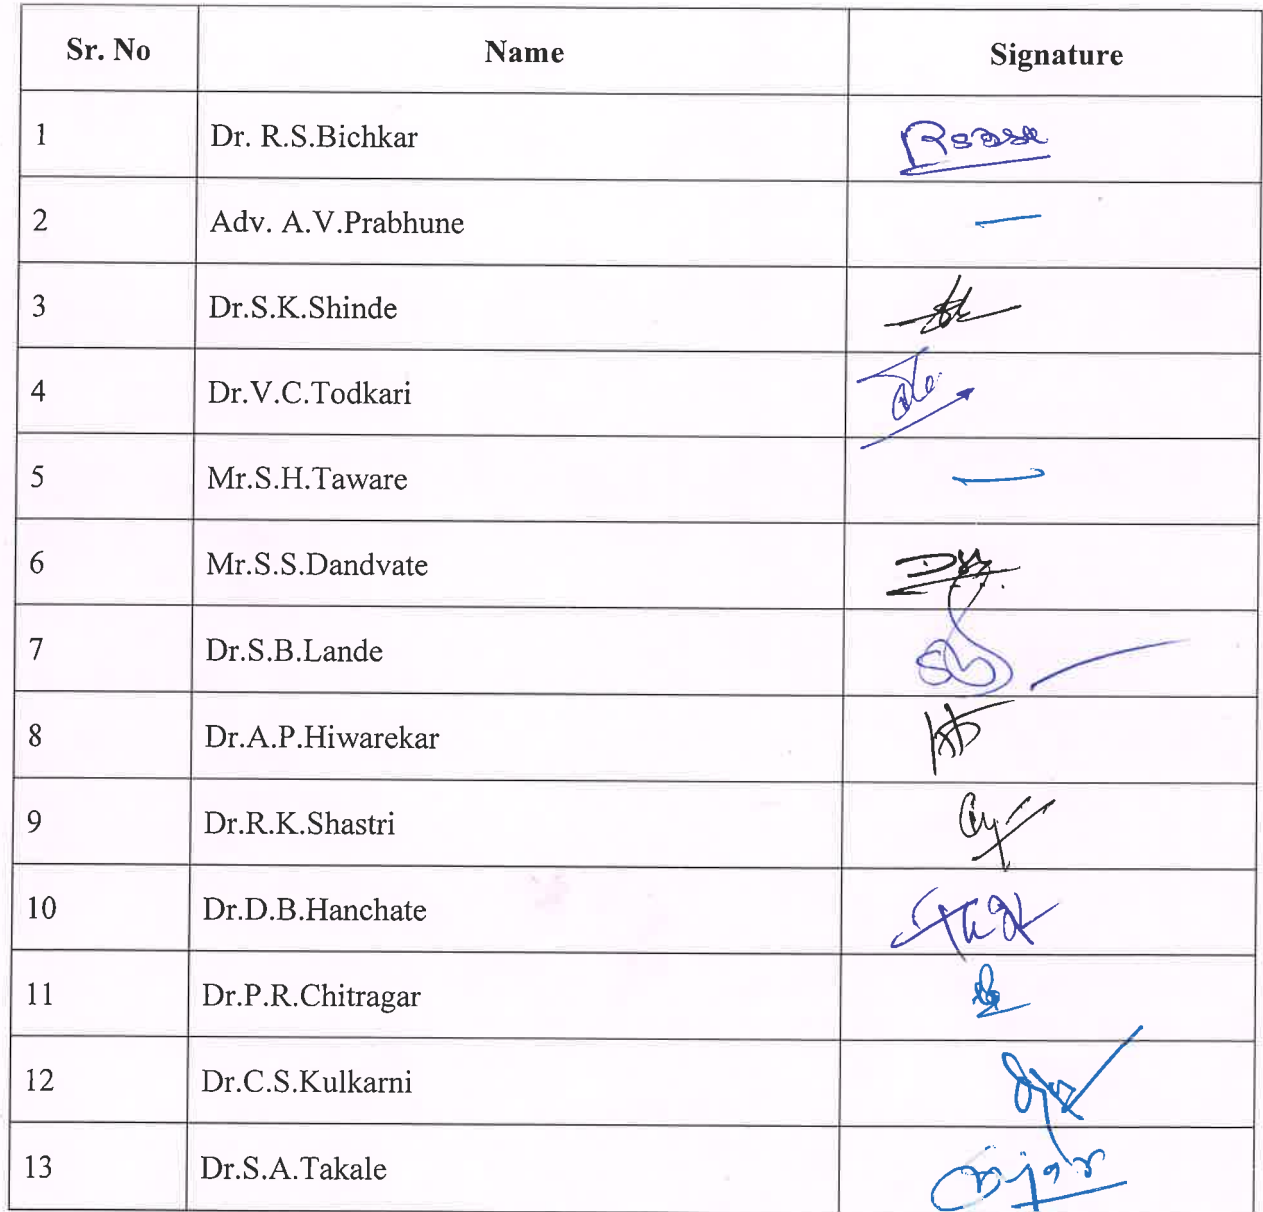 Sr. No Name Signature
1 Dr. R.S.Bichkar
2 Adv. A.V.Prabhune —
3 Dr.S.K.Shinde
4 Dr.V.C.Todkari
5 Mr.S.H.Taware —
6 Mr.S.S.Dandvate
7 Dr.S.B.Lande
8 Dr.A.P.Hiwarekar
9 Dr.R.K.Shastri
10 Dr.D.B.Hanchate
11 Dr.P.R.Chitragar
12 Dr.C.S.Kulkarni
13 Dr.S.A.Takale